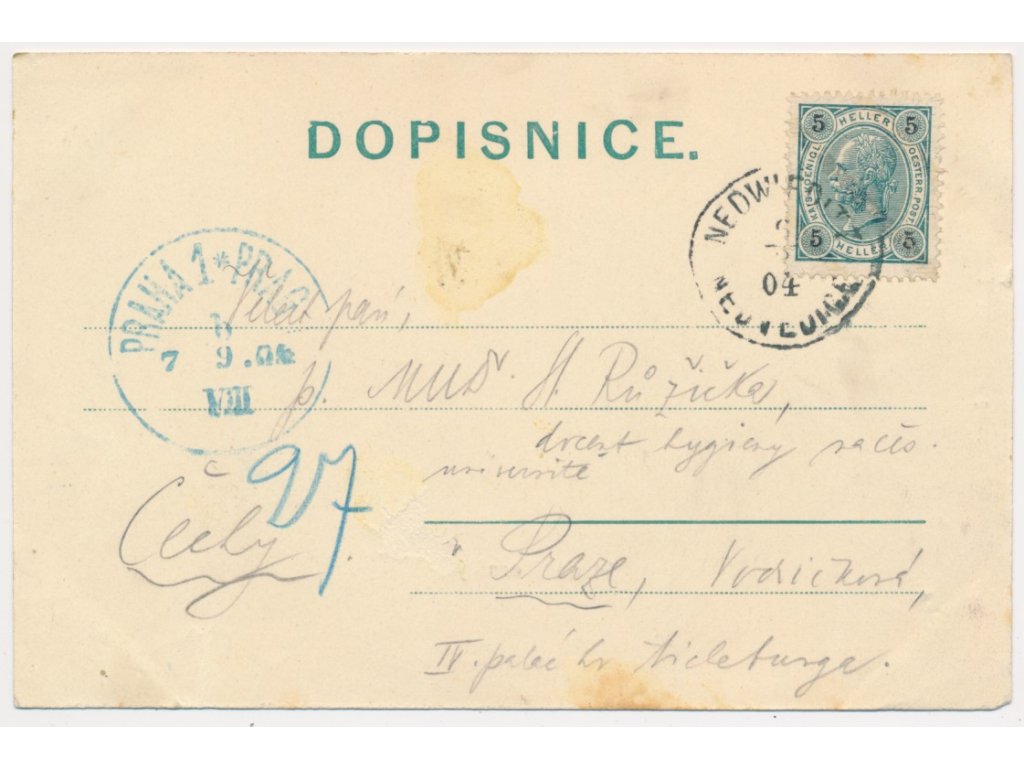 DOPISNICE.
5 HELLER 5
KAIS. KOENIGL. OESTERR. POST.
5 HELLER 5
NEDWIEDITZ
04
NEDVĚDICE
PRAHA 1 * PRAG
7 9.04
VIII
Velect. pan,
p. MUDr. St. Růžička,
docent hygieny na čes.
universitě
97
Čechy
v Praze, Vodičková,
IV. palác hr.